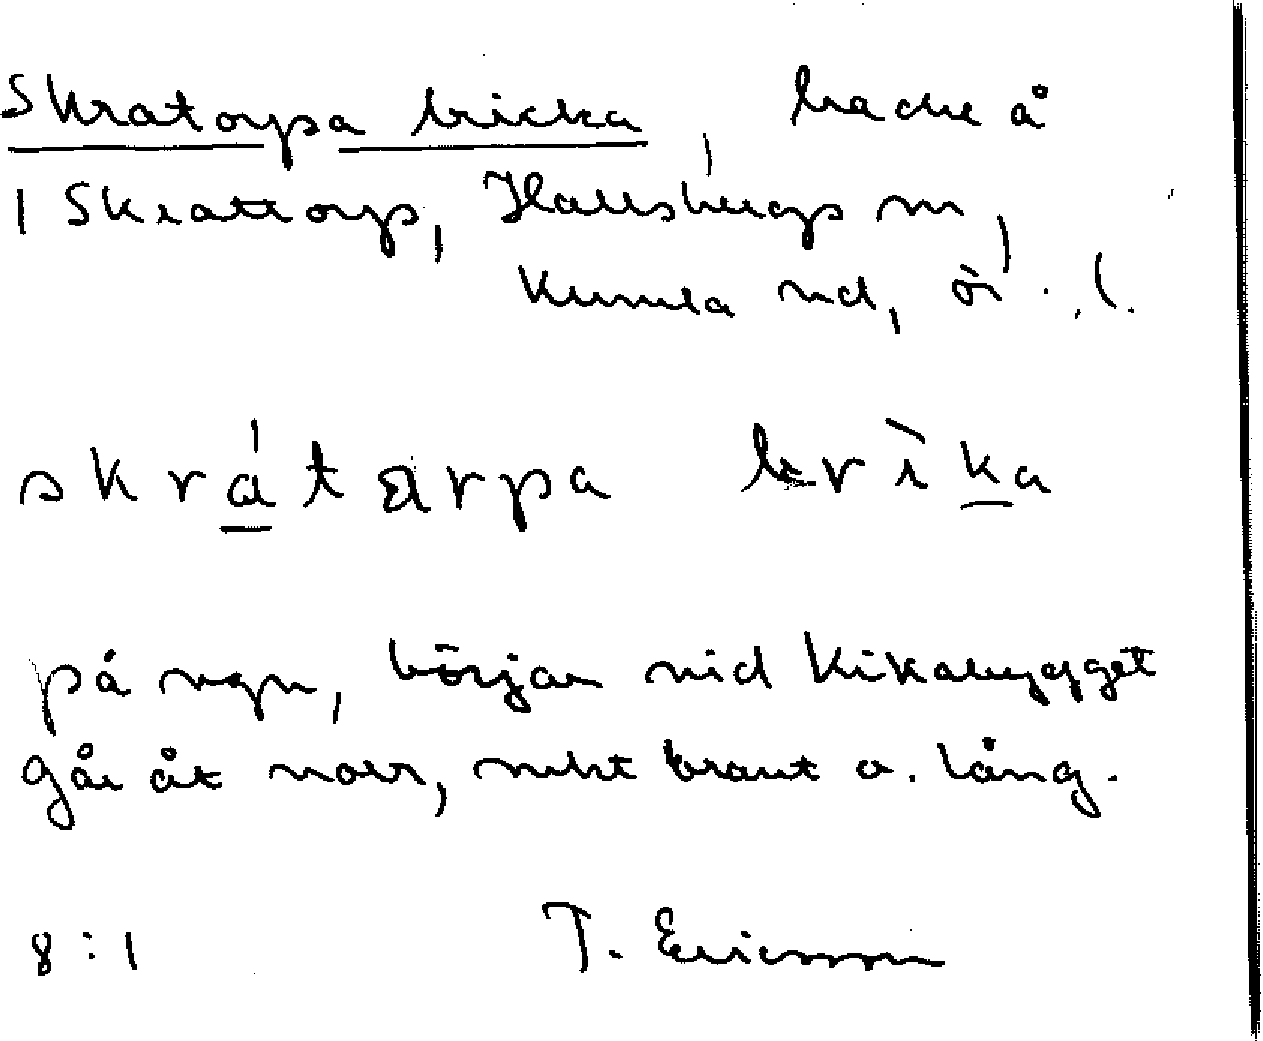 Skratorpa bricka, backe å
1 Skrattorp, Hallsbergs sn,
Kumla hd, ör. l.
skrátarpa brìka
på vgn, börjar vid Kikabygget
går åt norr, mkt brant o. lång.
8:1 T. Ericsson